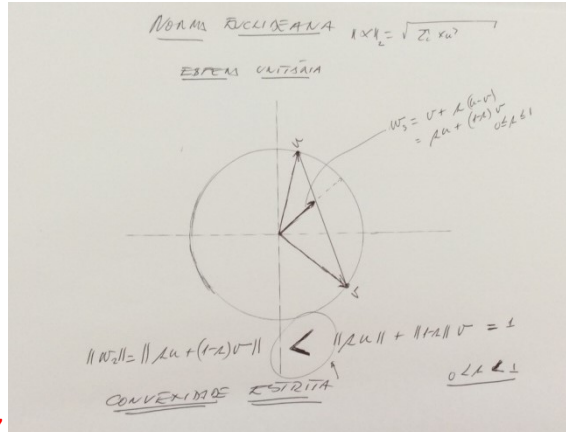 NORMA EUCLIDEANA ||x||₂ = √Σᵢ xᵢ²
ESFERA UNITÁRIA
w₂ = v + λ(u-v)
= λu + (1-λ)v
0≤λ≤1
u
v
||w₂|| = ||λu + (1-λ)v|| < ||λu|| + ||1-λ|| v = 1
CONVEXIDADE ESTRITA
0<λ<1